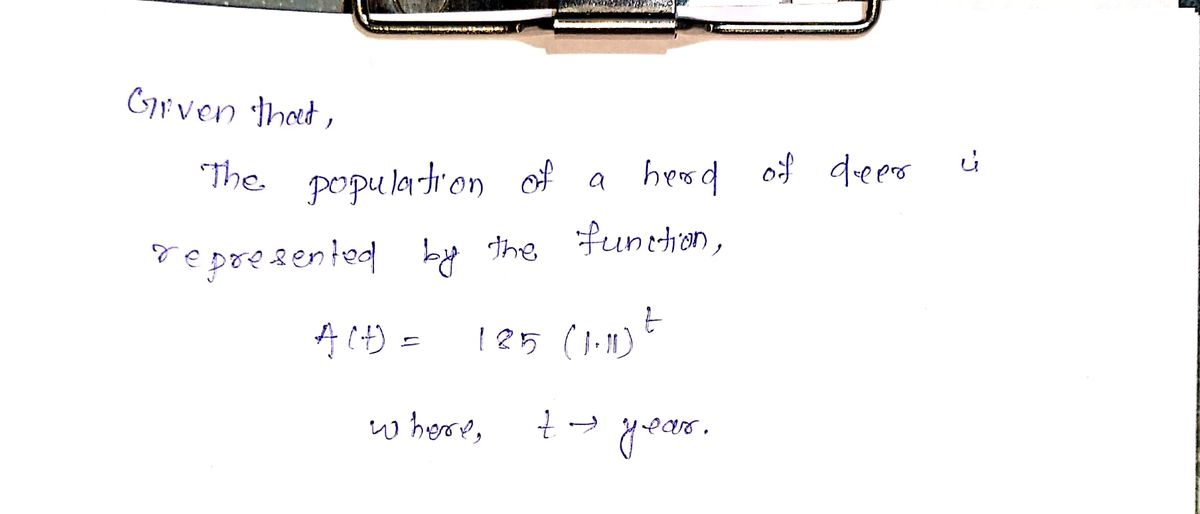 Given that,
The population of a herd of deer is
represented by the function,
A(t) = 125 (1.11)^t
where, t → year.